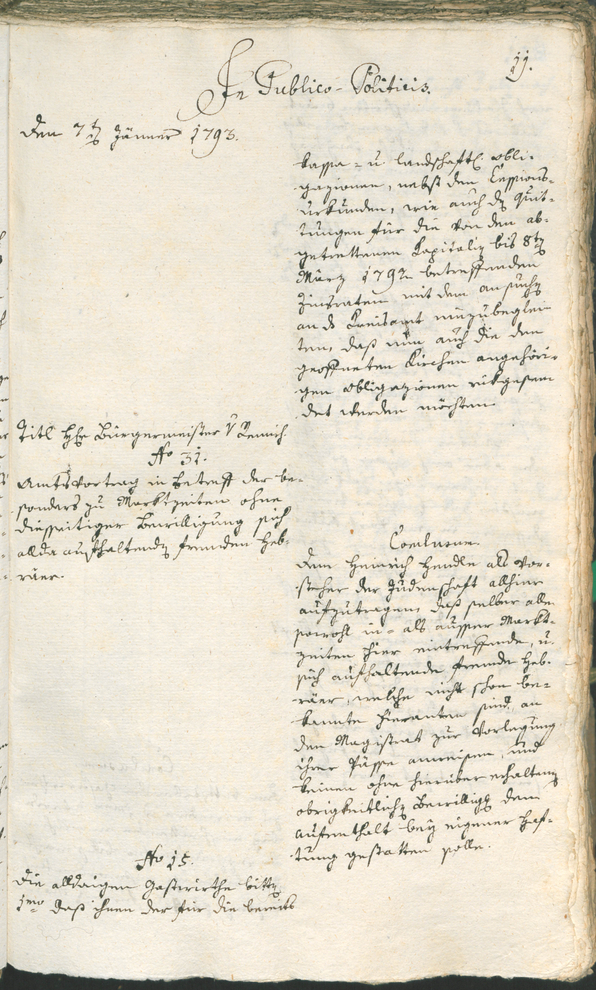 11.
In Publico-Politicis.
Den 7ten Jänner 1793.
kassa- u. landschaftl. obli-
gazionen, nebst den Cessions-
urkunden, wie auch den Quit-
tungen für die von den ab-
getrettenen Kapitalien bis 8ten
März 1792 betreffenden
Zinsraten mit dem ansuchen
an das Kreisamt einzubeglei-
ten, daß nun auch die den
gesperrten Kirchen angehöri-
gen obligazionen rükgesen-
det werden möchten.
Titl Hr Bürgermeister v
No 31.
Amtsvortrag in betreff der be-
sonders zu Marktzeiten ohne
diesseitiger Bewilligung sich
allda aufhaltenden fremden Heb-
räer.
Conclusum.
Dem Heinrich Hendle als Vor-
steher der Judenschaft allhier
aufzutragen, daß selber alle
sowohl in- als ausser Markt-
zeiten hier eintreffende, u.
sich aufhaltende fremde Heb-
räer, welche nicht schon be-
kannte Fieranten sind, an
den Magistrat zur Vorlegung
ihrer Pässe anweisen, und
keinen ohne hierüber erhaltene
obrigkeitliche Bewilligg den
Aufenthalt bey eigener Haf-
tung gestatten solle.
No 15.
Die alldaigen Gastwirthe bitten
1mo daß ihnen der für die bereits